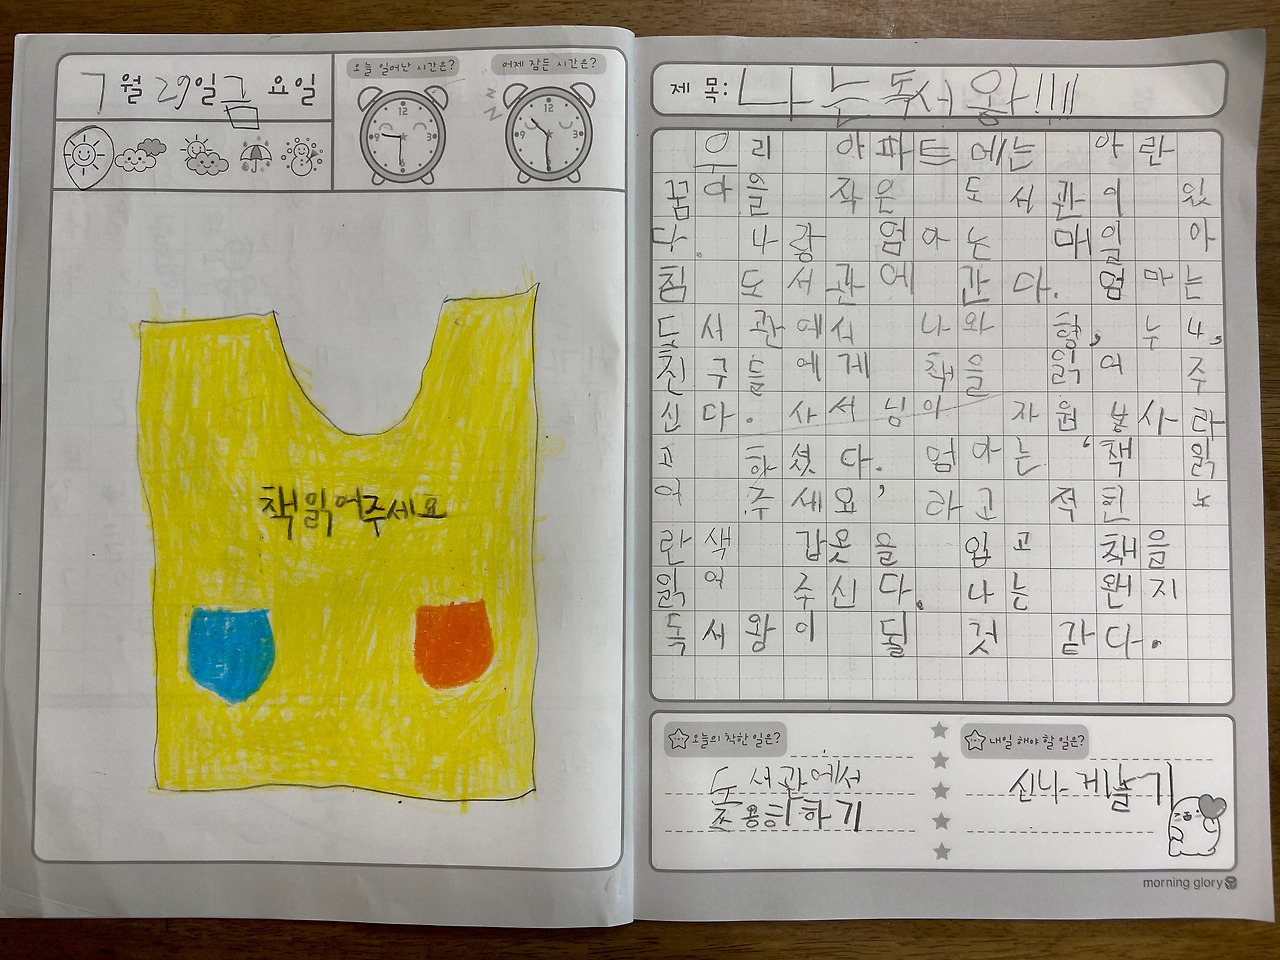 7월 29일 금요일
오늘 일어난 시간은?
어제 잠든 시간은?
12
9
3
12
9
3
책읽어주세요
제 목: 나는독서왕!!!!
우리 아파트에는 아란
꿈마을 작은 도서관이 있
다. 나랑 엄마는 매일 아
침 도서관에 간다. 엄마는
도서관에서 나와 형, 누나,
친구들에게 책을 읽어 주
신다. 사서님의 자원 봉사라
고 하셨다. 엄마는 '책 읽
어 주세요' 라고 적힌 노
란색 갑옷을 입고 책을
읽어 주신다. 나는 왠지
독서왕이 될 것 같다.
오늘의 착한 일은?
도서관에서
조용히하기
내일 해야 할 일은?
신나게놀기
morning glory